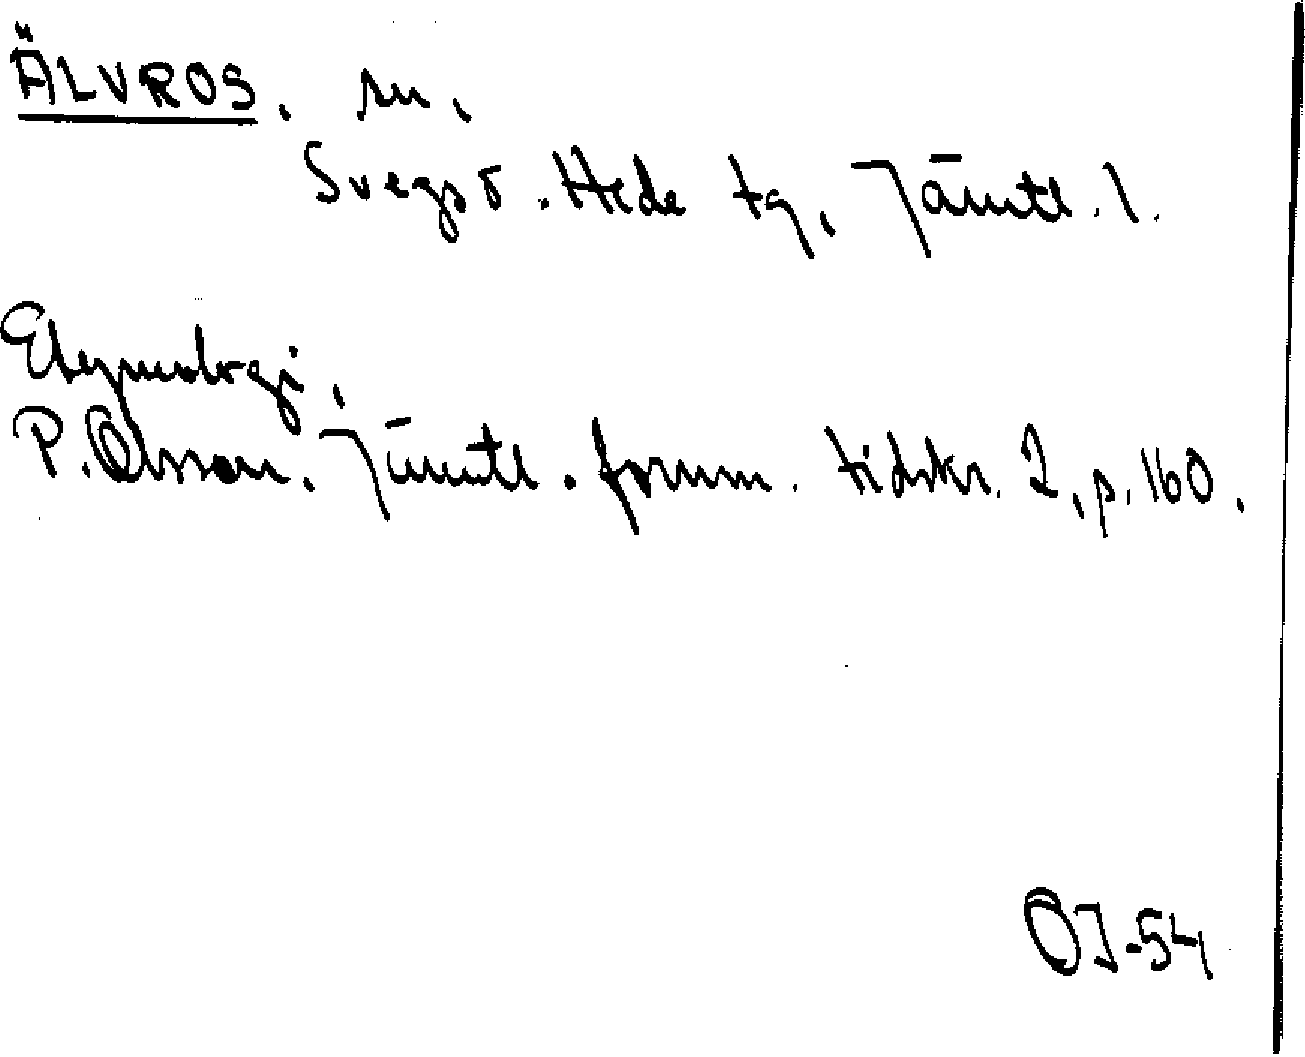 ÄLVROS. sn.
Svegs o. Hede tg, Jämtl. l.
Etymologi.
P. Olsson. Jämtl. fornm. tidskr. 2, p. 160.
OJ-54